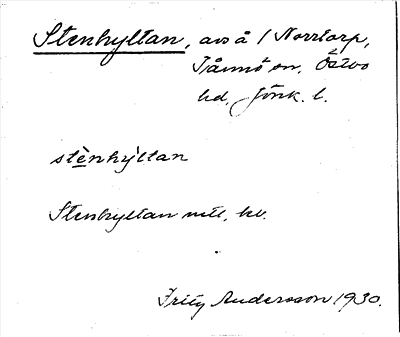 Stenhyltan, avs å / Norrtorp,
Tånnö sn, Östbo
hd, Jönk. l.
stènhýltan
Stenhyltan mtl, kv.
Fritz Andersson 1930.